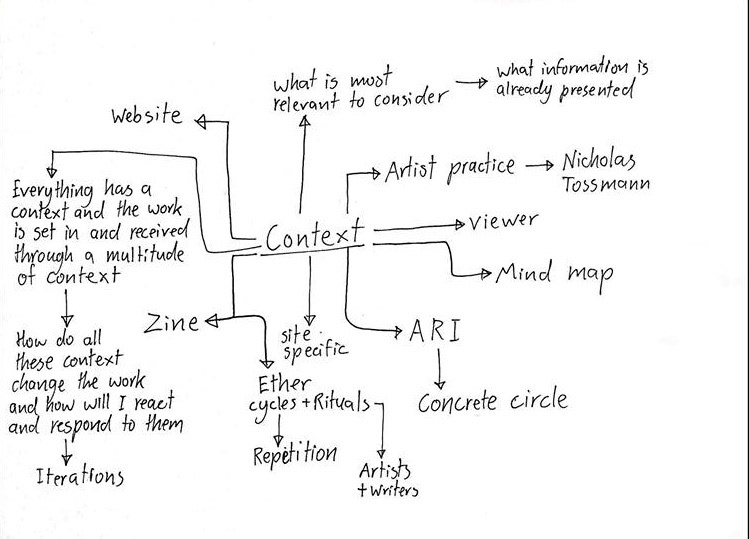 what is most
relevant to consider
what information is
already presented
Website
Artist practice
Nicholas
Tossmann
Everything has a
context and the work
is set in and received
through a multitude
of context
Context
viewer
Mind map
Zine
site
specific
ARI
How do all
these context
change the work
and how will I react
and respond to them
Ether
cycles + Rituals
Concrete circle
Repetition
Iterations
Artists
+ writers